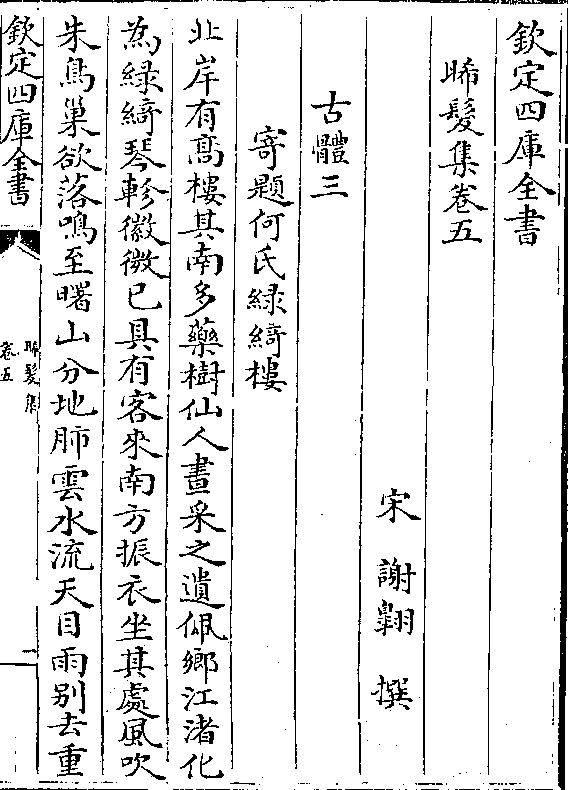 欽定四庫全書
晞髮集卷五
宋 謝翺 撰
古體三
寄題何氏緑綺樓
北岸有髙樓其南多藥樹仙人晝采之遺佩鄉江渚化
為緑綺琴軫徽微已具有客來南方振衣坐其處風吹
朱鳥巢欲落鳴至曙山分地肺雲水流天目雨别去重
欽定四庫全書
晞髮集
卷五
一